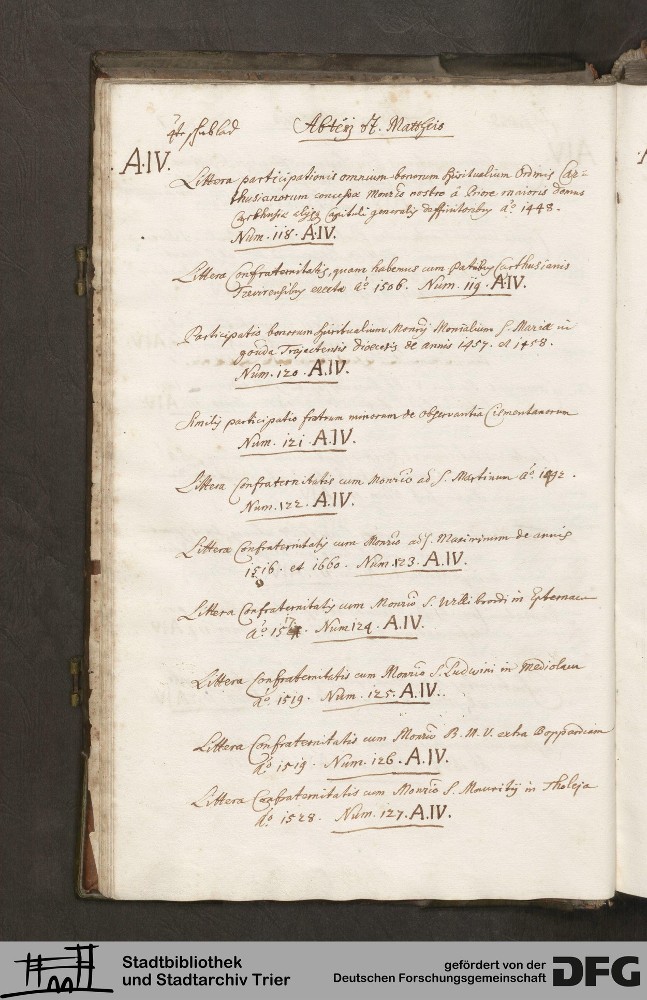 4te schublad Abteij St. Mattheis
A.IV.
Littera participationis omnium bonorum spiritualium Ordinis Car=
thusianorum concessa Monrio nostro á Priore maioris domus
Carthusiæ aliisq Capituli generalis deffinitoribus aõ. 1448.
Num. 118. A.IV.
Littera Confraternitatis, quam habemus cum Patribus Carthusianis
Trevirensibus erecta Aõ. 1506. Num. 119. A.IV.
Participatio bonorum spiritualium Monrij Monialium S. Mariæ in
gouda Trajectensis dioecesis de annis 1457. et 1458.
Num. 120. A.IV.
Similis participatio fratrum minorum de Observantia Cismontanorum
Num. 121. A.IV.
Littera Confraternitatis cum Monrio ad S. Martinum Aõ.
Num. 122. A.IV.
Litteræ Confraternitatis cum Monrio ad S. Maximinum de annis
1516. et 1660. Num. 123. A.IV.
Littera Confraternitatis cum Monrio S. Willibrordi in Epternaco
Aõ. Num. 124. A.IV.
Littera Confraternitatis cum Monrio S. Ludwini in Mediolacu
Aõ. 1519. Num. 125. A.IV.
Littera Confraternitatis cum Monrio B.M.V. extra Boppardiam
Aõ. 1519. Num. 126. A.IV.
Littera Confraternitatis cum Monrio S. Mauritij in Tholeja
Aõ. 1528. Num. 127. A.IV.
Stadtbibliothek
und Stadtarchiv Trier
gefördert von der
Deutschen Forschungsgemeinschaft
DFG